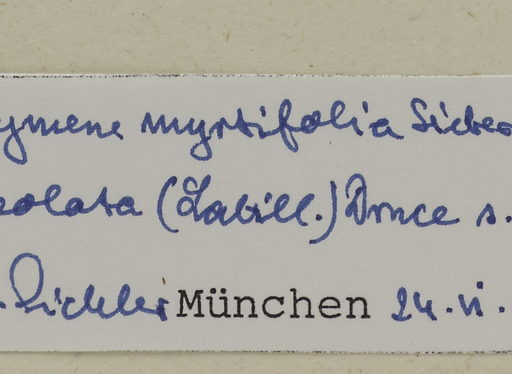 ymene myrtifolia Sieber
eolata (Labill.) Druce s.
. Pichler München 24.vi.